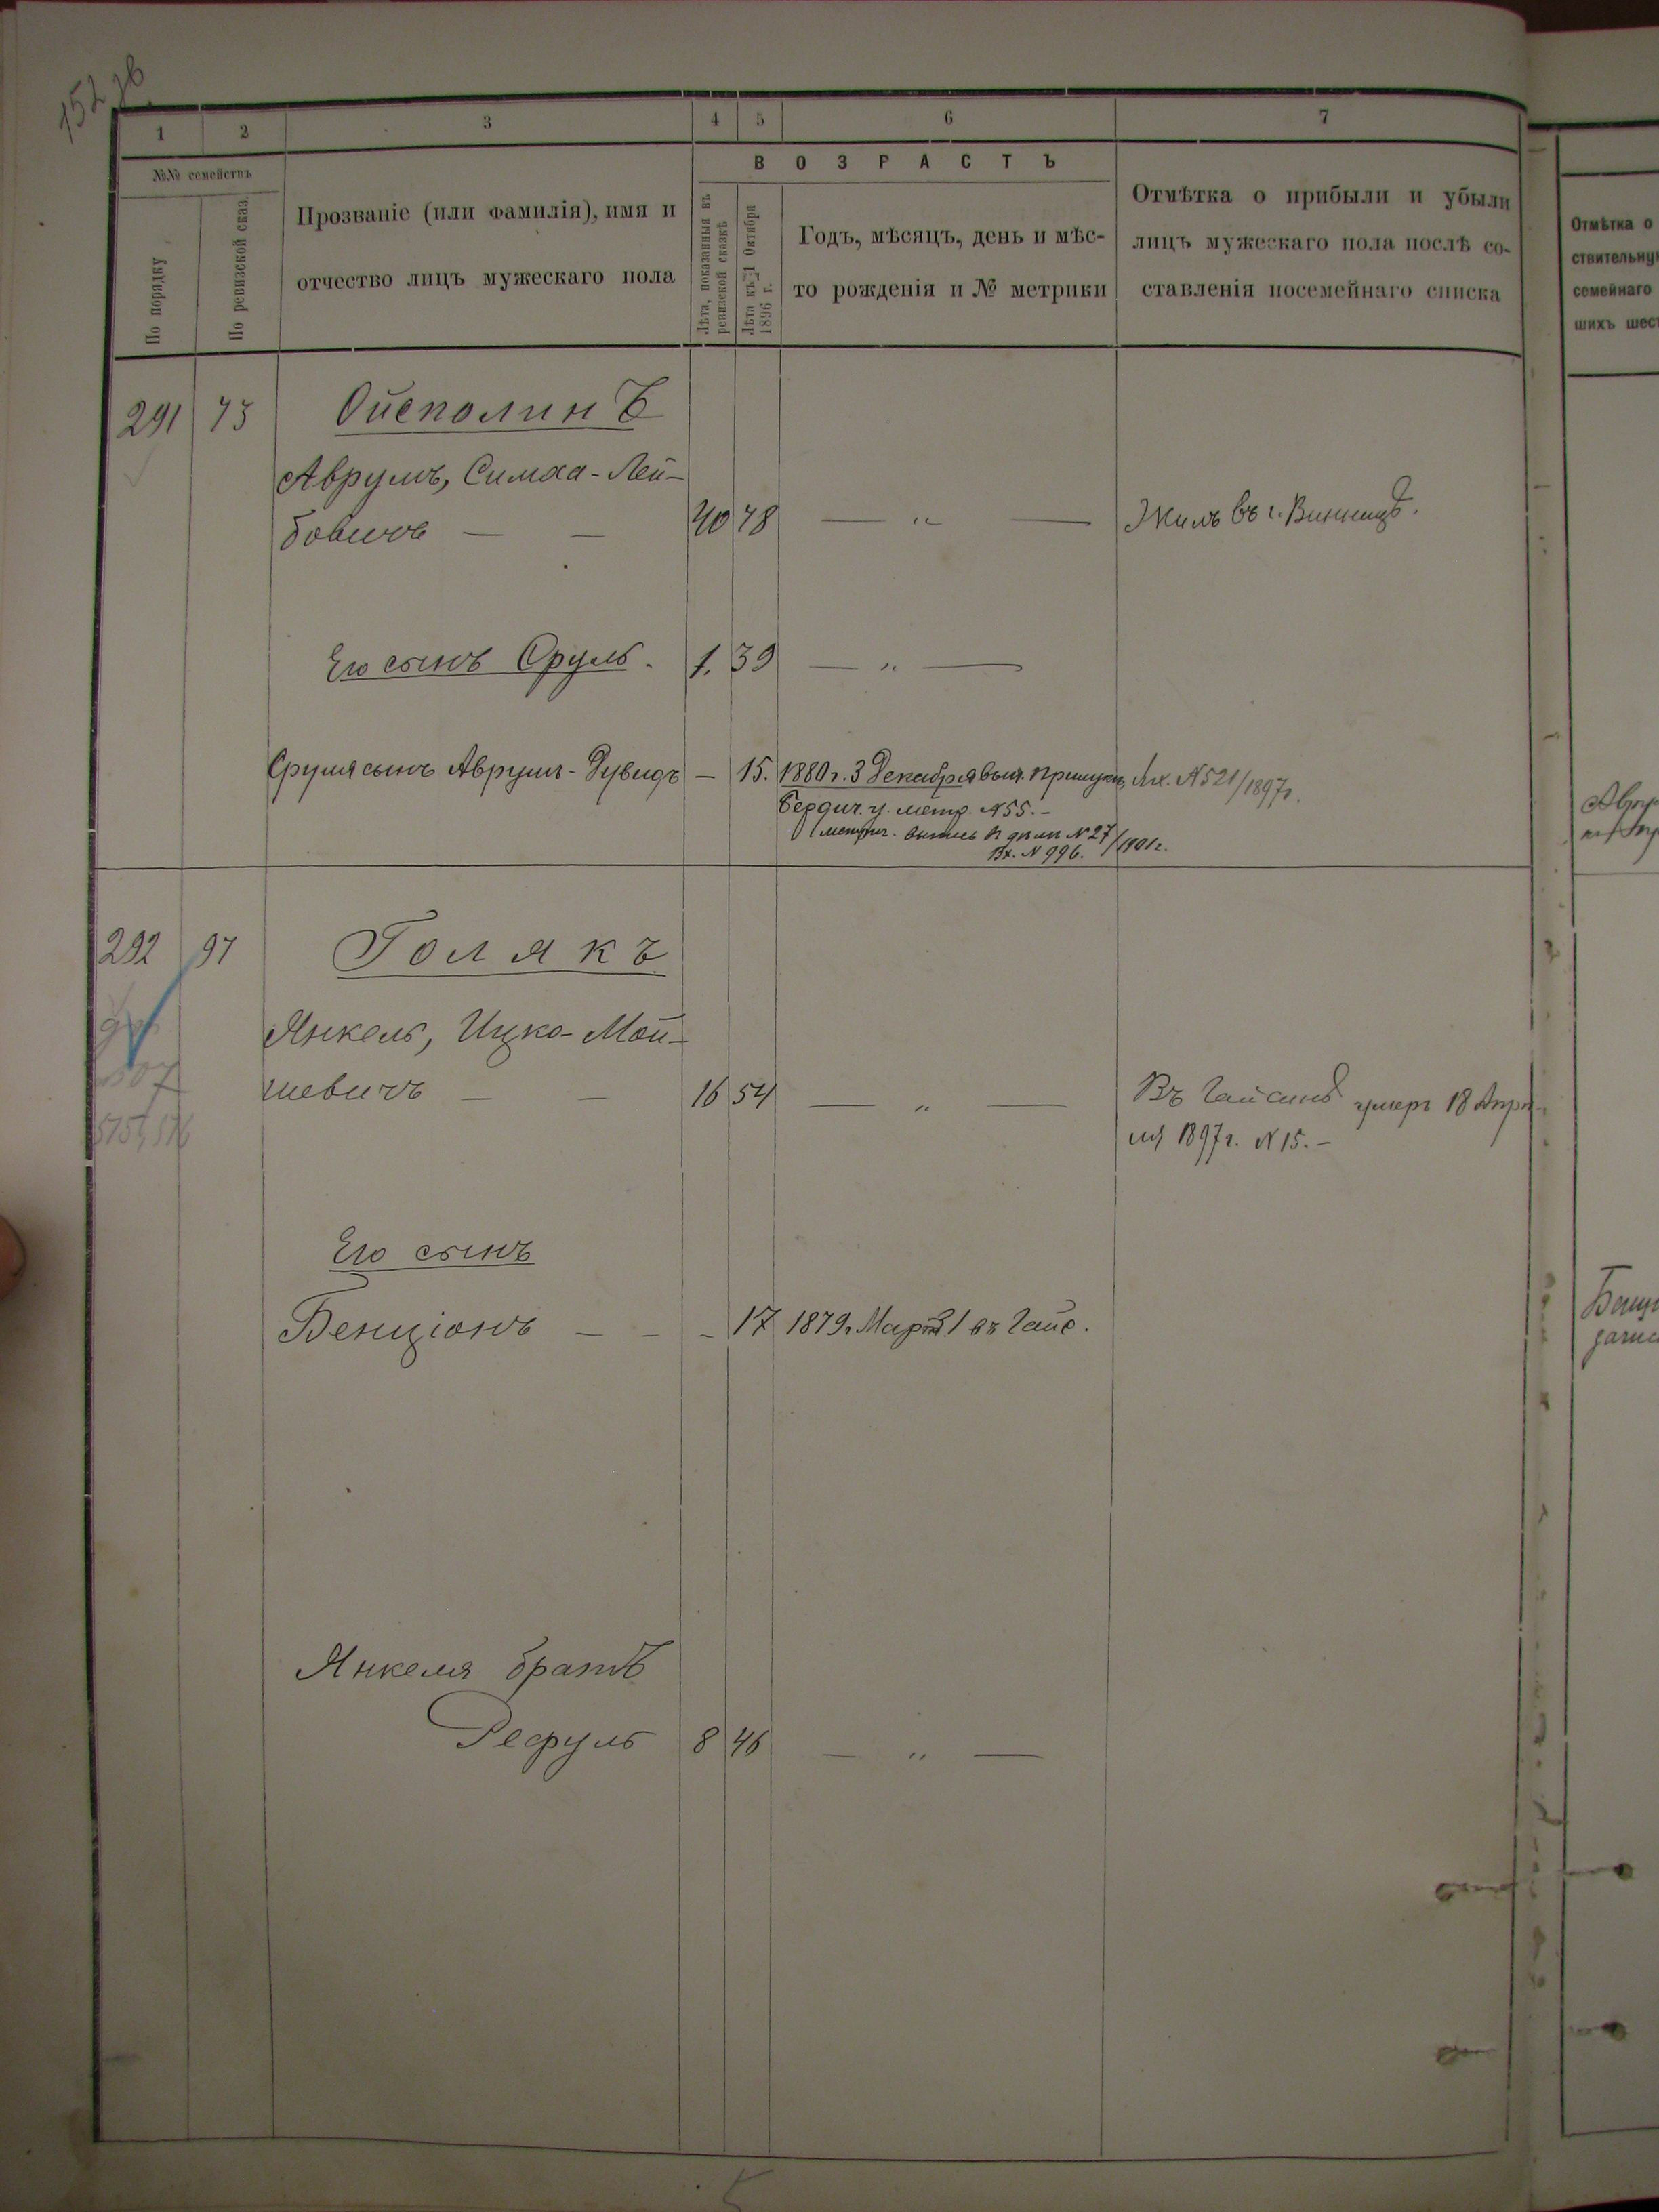 152 об
1 2 3 4 5 6 7
№№ семействъ
По порядку
По ревизской сказ.
Прозваніе (или фамилія), имя и
отчество лицъ мужескаго пола
ВОЗРАСТЪ
Лѣта, показанныя въ
ревизской сказкѣ
Лѣта къ 1 Октября
1896 г.
Годъ, мѣсяцъ, день и мѣс-
то рожденія и № метрики
Отмѣтка о прибыли и убыли
лицъ мужескаго пола послѣ со-
ставленія посемейнаго списка
Отмѣтка о
ствительну
семейнаго
шихъ шест
291 73 Ойсполинъ
Аврумъ, Симха-Лей-
бовичъ — — 40 78 — „ — Жилъ въ г. Винницѣ.
Его сынъ Сруль. 1. 39 — „ —
Сруля сынъ Аврумъ-Дувидъ — 15. 1880 г. 3 Декабря въ м. Вх. № 521/1897 г.
Бердич. у. метр. № 55.—
метрич. выпись № 27/1901 г.
Вх. № 996.
292 97 Голякъ
Янкель, Ицко-Мой-
шевичъ — — 16 54 — „ — Въ Гайсинѣ умеръ 18 Апрѣ-
ля 1897 г. № 15.—
Его сынъ
Бенціонъ — — — 17 1879 г. Марта 1 въ Гайс.
Янкеля братъ
Рефуль 8 46 — „ —